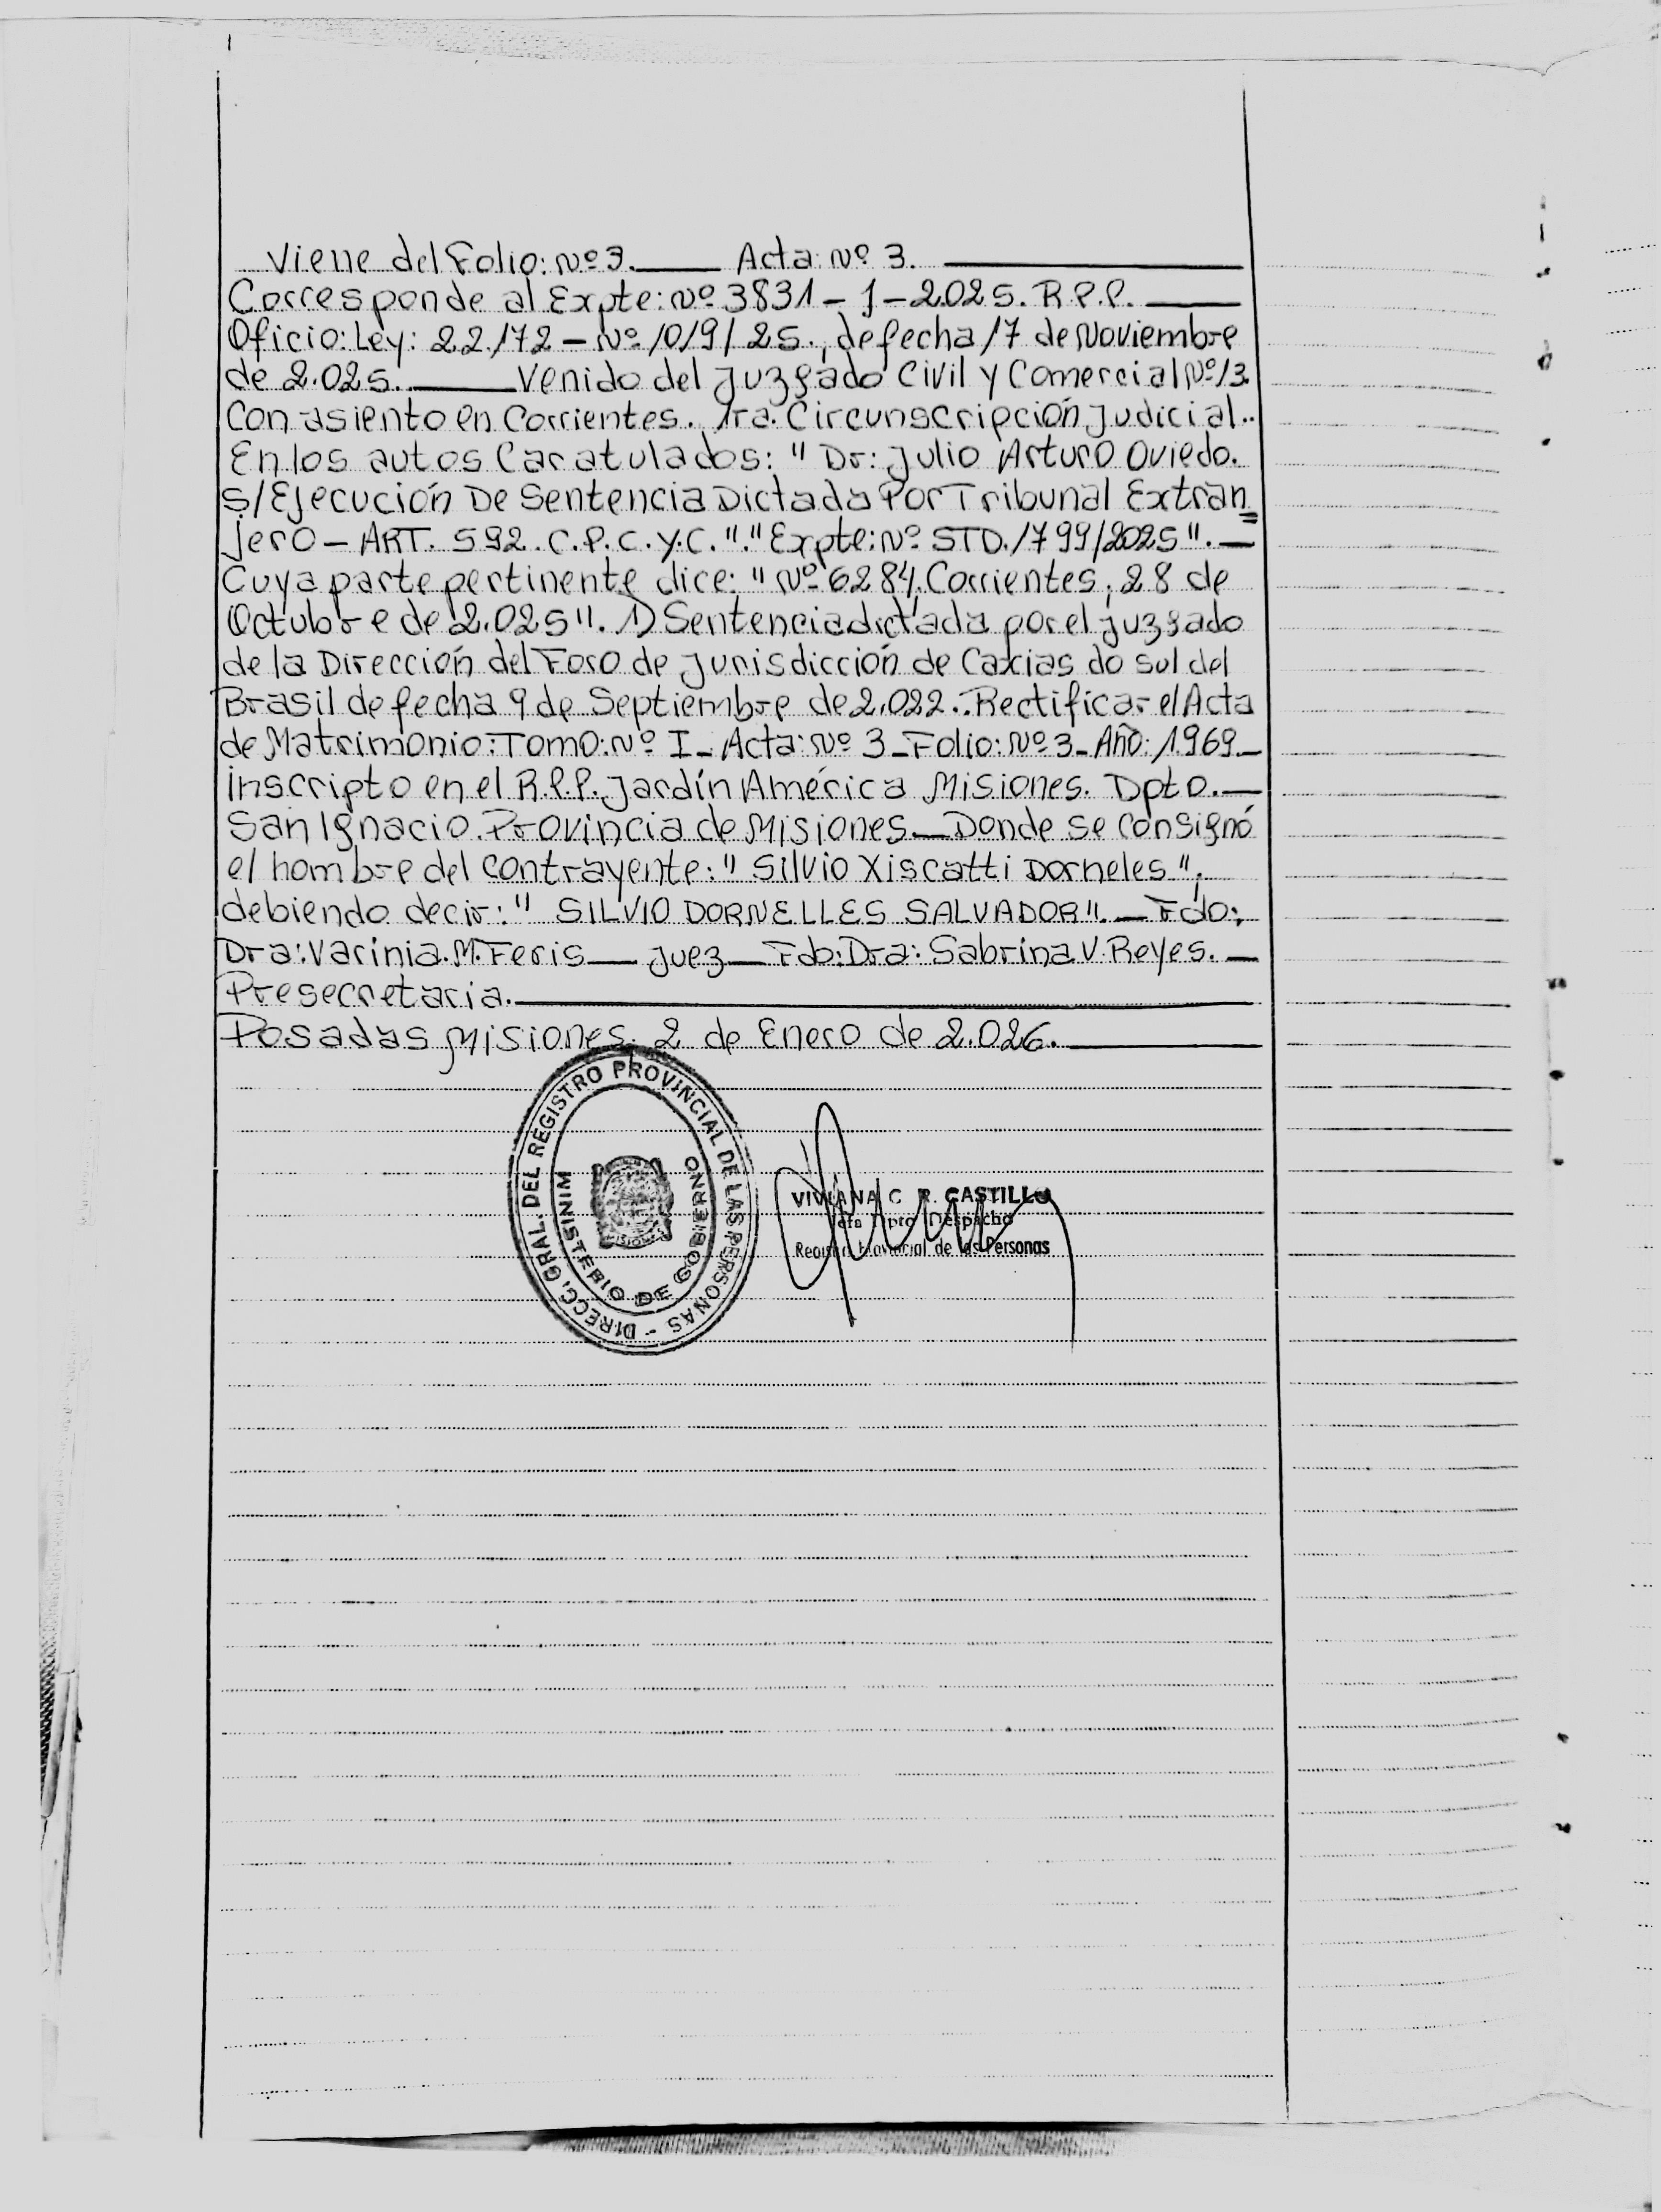 Viene del Folio: Nº 3. Acta: Nº 3.
Corresponde al Expte: Nº 3831-J-2.025. R.P.P.
Oficio: Ley: 22.172 - Nº 1019/25., de fecha 17 de Noviembre
de 2.025. Venido del Juzgado Civil y Comercial Nº 13.
Con asiento en Corrientes. 1ra. Circunscripción Judicial..
En los autos Caratulados: " Dr: Julio Arturo Oviedo.
S/Ejecución De Sentencia Dictada Por Tribunal Extran=
jero - ART. 592. C.P.C.Y.C."." Expte: Nº STD.1799/2025".
Cuya parte pertinente dice: " Nº 6284, Corrientes, 28 de
Octubre de 2.025". 1) Sentencia dictada por el Juzgado
de la Dirección del Foro de Jurisdicción de Caxias do Sul del
Brasil de fecha 9 de Septiembre de 2.022.. Rectificar el Acta
de Matrimonio: Tomo: Nº I - Acta: Nº 3 - Folio: Nº 3 - Año: 1.969
inscripto en el R.P.P. Jardín América Misiones. Dpto.
San Ignacio. Provincia de Misiones. Donde se consignó
el nombre del contrayente: " Silvio Xiscatti Dorneles ",
debiendo decir: " SILVIO DORNELLES SALVADOR". Fdo:
Dra: Varinia. M. Feris Juez Fdo: Dra: Sabrina. V. Reyes.
Presecretaria.
Posadas Misiones, 2 de Enero de 2.026.
DIRECC. GRAL. DEL REGISTRO PROVINCIAL DE LAS PERSONAS -
MINISTERIO DE GOBIERNO
MISIONES
VIVIANA C. R. CASTILLO
Jefa Dpto Despacho
Registro Provincial de las Personas